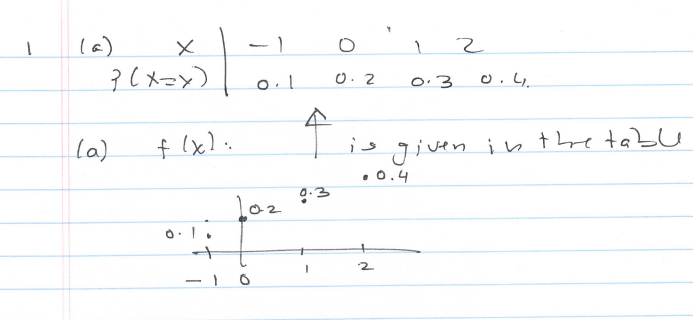 1 (a) x | -1 0 1 2
P(X=x) | 0.1 0.2 0.3 0.4.
(a) f(x): ↑ is given in the table
• 0.4
0.3
0.2
0.1
-1 0 1 2